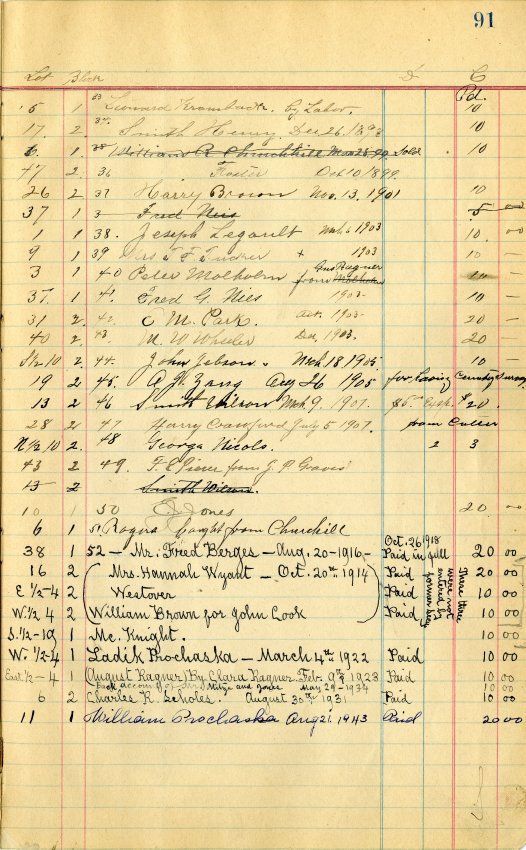 91
Lot Block D C
Pd.
5 1 33 Leonard Krombach. By Labor. 10
17 2 Smith Henry Dec 26, 1898 10
6 1 William R Churchill Mar 28, 99 Sold 10
47 2 36 Foster Oct 10/1899.
26 2 37 Harry Brown Nov. 13, 1901 10
37 1 3 Fred Nies 5 00
1 1 38. Joseph Legault Mch. 6 1903 10. 00
9 1 39 Mrs T F Tucker + 1903 10 -
3 1 40 Peter Malholm Gus Ragner from 10 -
37. 1 41 Fred G. Nies 1903- 10 -
31 2 42 C M. Park. Oct. 1903- 20 -
40 2 43. M. W Wheeler Dec, 1903. 20
S 1/2 10 2 44. John Jobson. Mch 18 1905 10 -
19 2 45. Aug 26 1905 for Loving Cemetery Survey
13 2 46 Smith Wilson Mch 9, 1907. $5. $20.
28 2 47 Harry Crawford July 5 1907. from Culler
N 1/2 10 2 48 George Nicols. 2 3
43 2 49. from J. P Graves
13 2 Smith Wilson.
10 1 50 Jones 20. 00
6 1 51 Rogers bought from Churchill
38 1 52 - Mr. Fred Berges - Aug. 20-1916- Oct. 26 1918 Paid in full 20 00
16 2 Mrs. Hannah Wyant - Oct. 20th 1914 Paid 20 00
E 1/2-4 2 Westover Paid 10 00
W. 1/2 4 2 William Brown for John Cook Paid 10 00
These three were not entered by former Secy
S. 1/2-19 1 Mc. Knight. 10 00
W. 1/2-4 1 Ladik Prochaska - March 4th 1922 Paid 10 00
East 1/2-4 1 August Ragner / By Clara Ragner Feb. 9th 1923 Paid 10 00
Back account for Mrs. Mitze and Jones May 29-1934 10 00
6 2 Charles R. Scholes. August 30th 1931 Paid 10 00
11 1 William Prochaska Aug 21, 1943 Paid 20 00